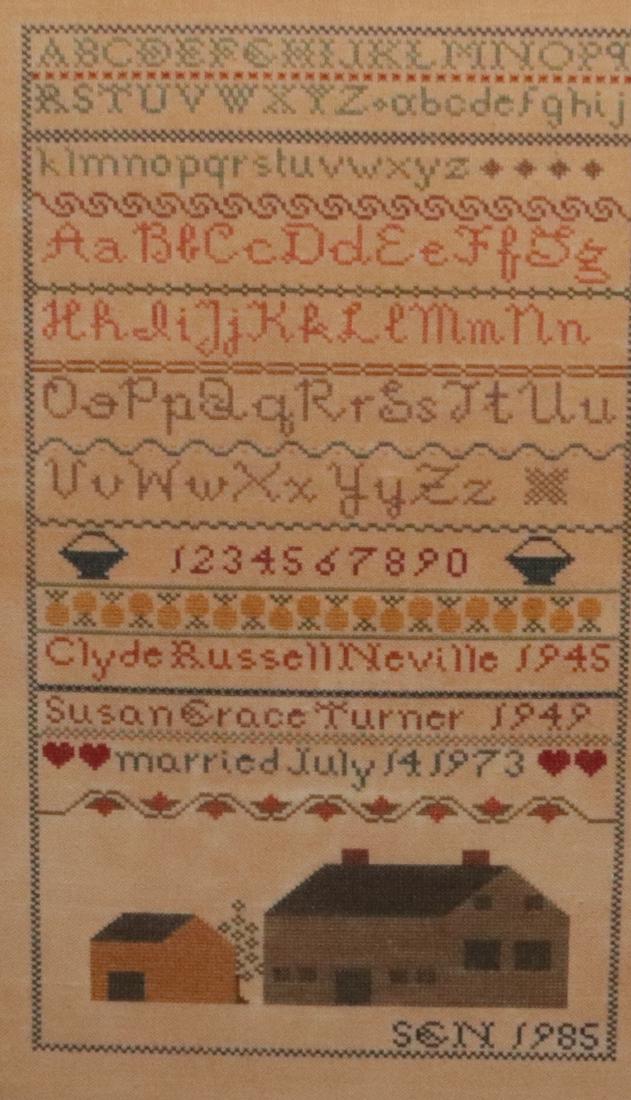 ABCDEFGHIJKLMNOPQ
RSTUVWXYZabcdefghij
klmnopqrstuvwxyz
AaBbCcDdEeFfGg
HhIiJjKkLlMmNn
OoPpQqRrSsTtUu
VvWwXxYyZz
1234567890
Clyde Russell Neville 1945
Susan Grace Turner 1949
married July 14 1973
SGN 1985